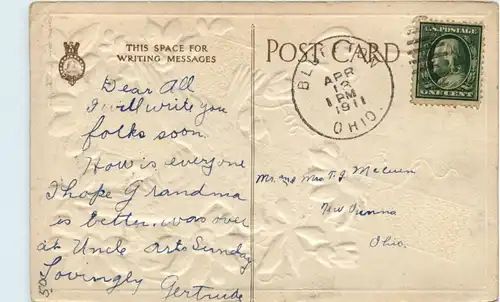 THIS SPACE FOR
WRITING MESSAGES
POST CARD
BLUFFTON
APR
13
1 PM
1911
OHIO.
U.S. POSTAGE
ONE CENT
Dear All
I will write you
folks soon.
How is everyone
I hope Grandma
is better. was over
at Uncle Arts Sunday
Lovingly
Gertrude
Mr. and Mrs T. J.
New Vienna
Ohio.
50c